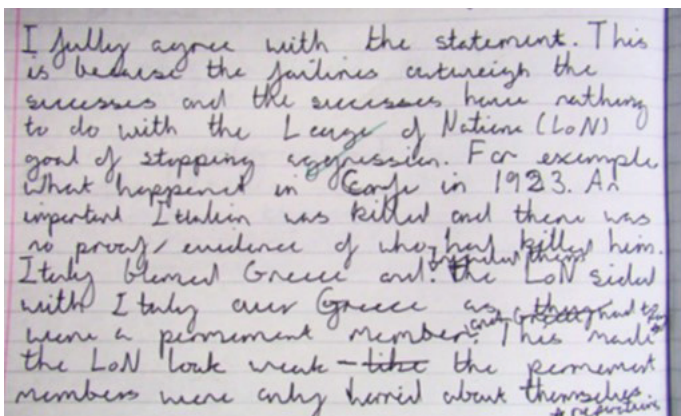 I fully agree with the statement. This
is because the failines outweigh the
successes and the successes have nothing
to do with the Leauge of Nations (LoN)
goal of stopping aggression. For example
what happened in Corfu in 1923. An
important Itialian was killed and there was
no proof/evidence of who had killed him.
Italy blamed Greece and invaded them the LoN sided
with Italy over Greece as they
were a permement member. and had to pay This made
the LoN look weak – like the permement
members were only worried about themselves.
* reparations